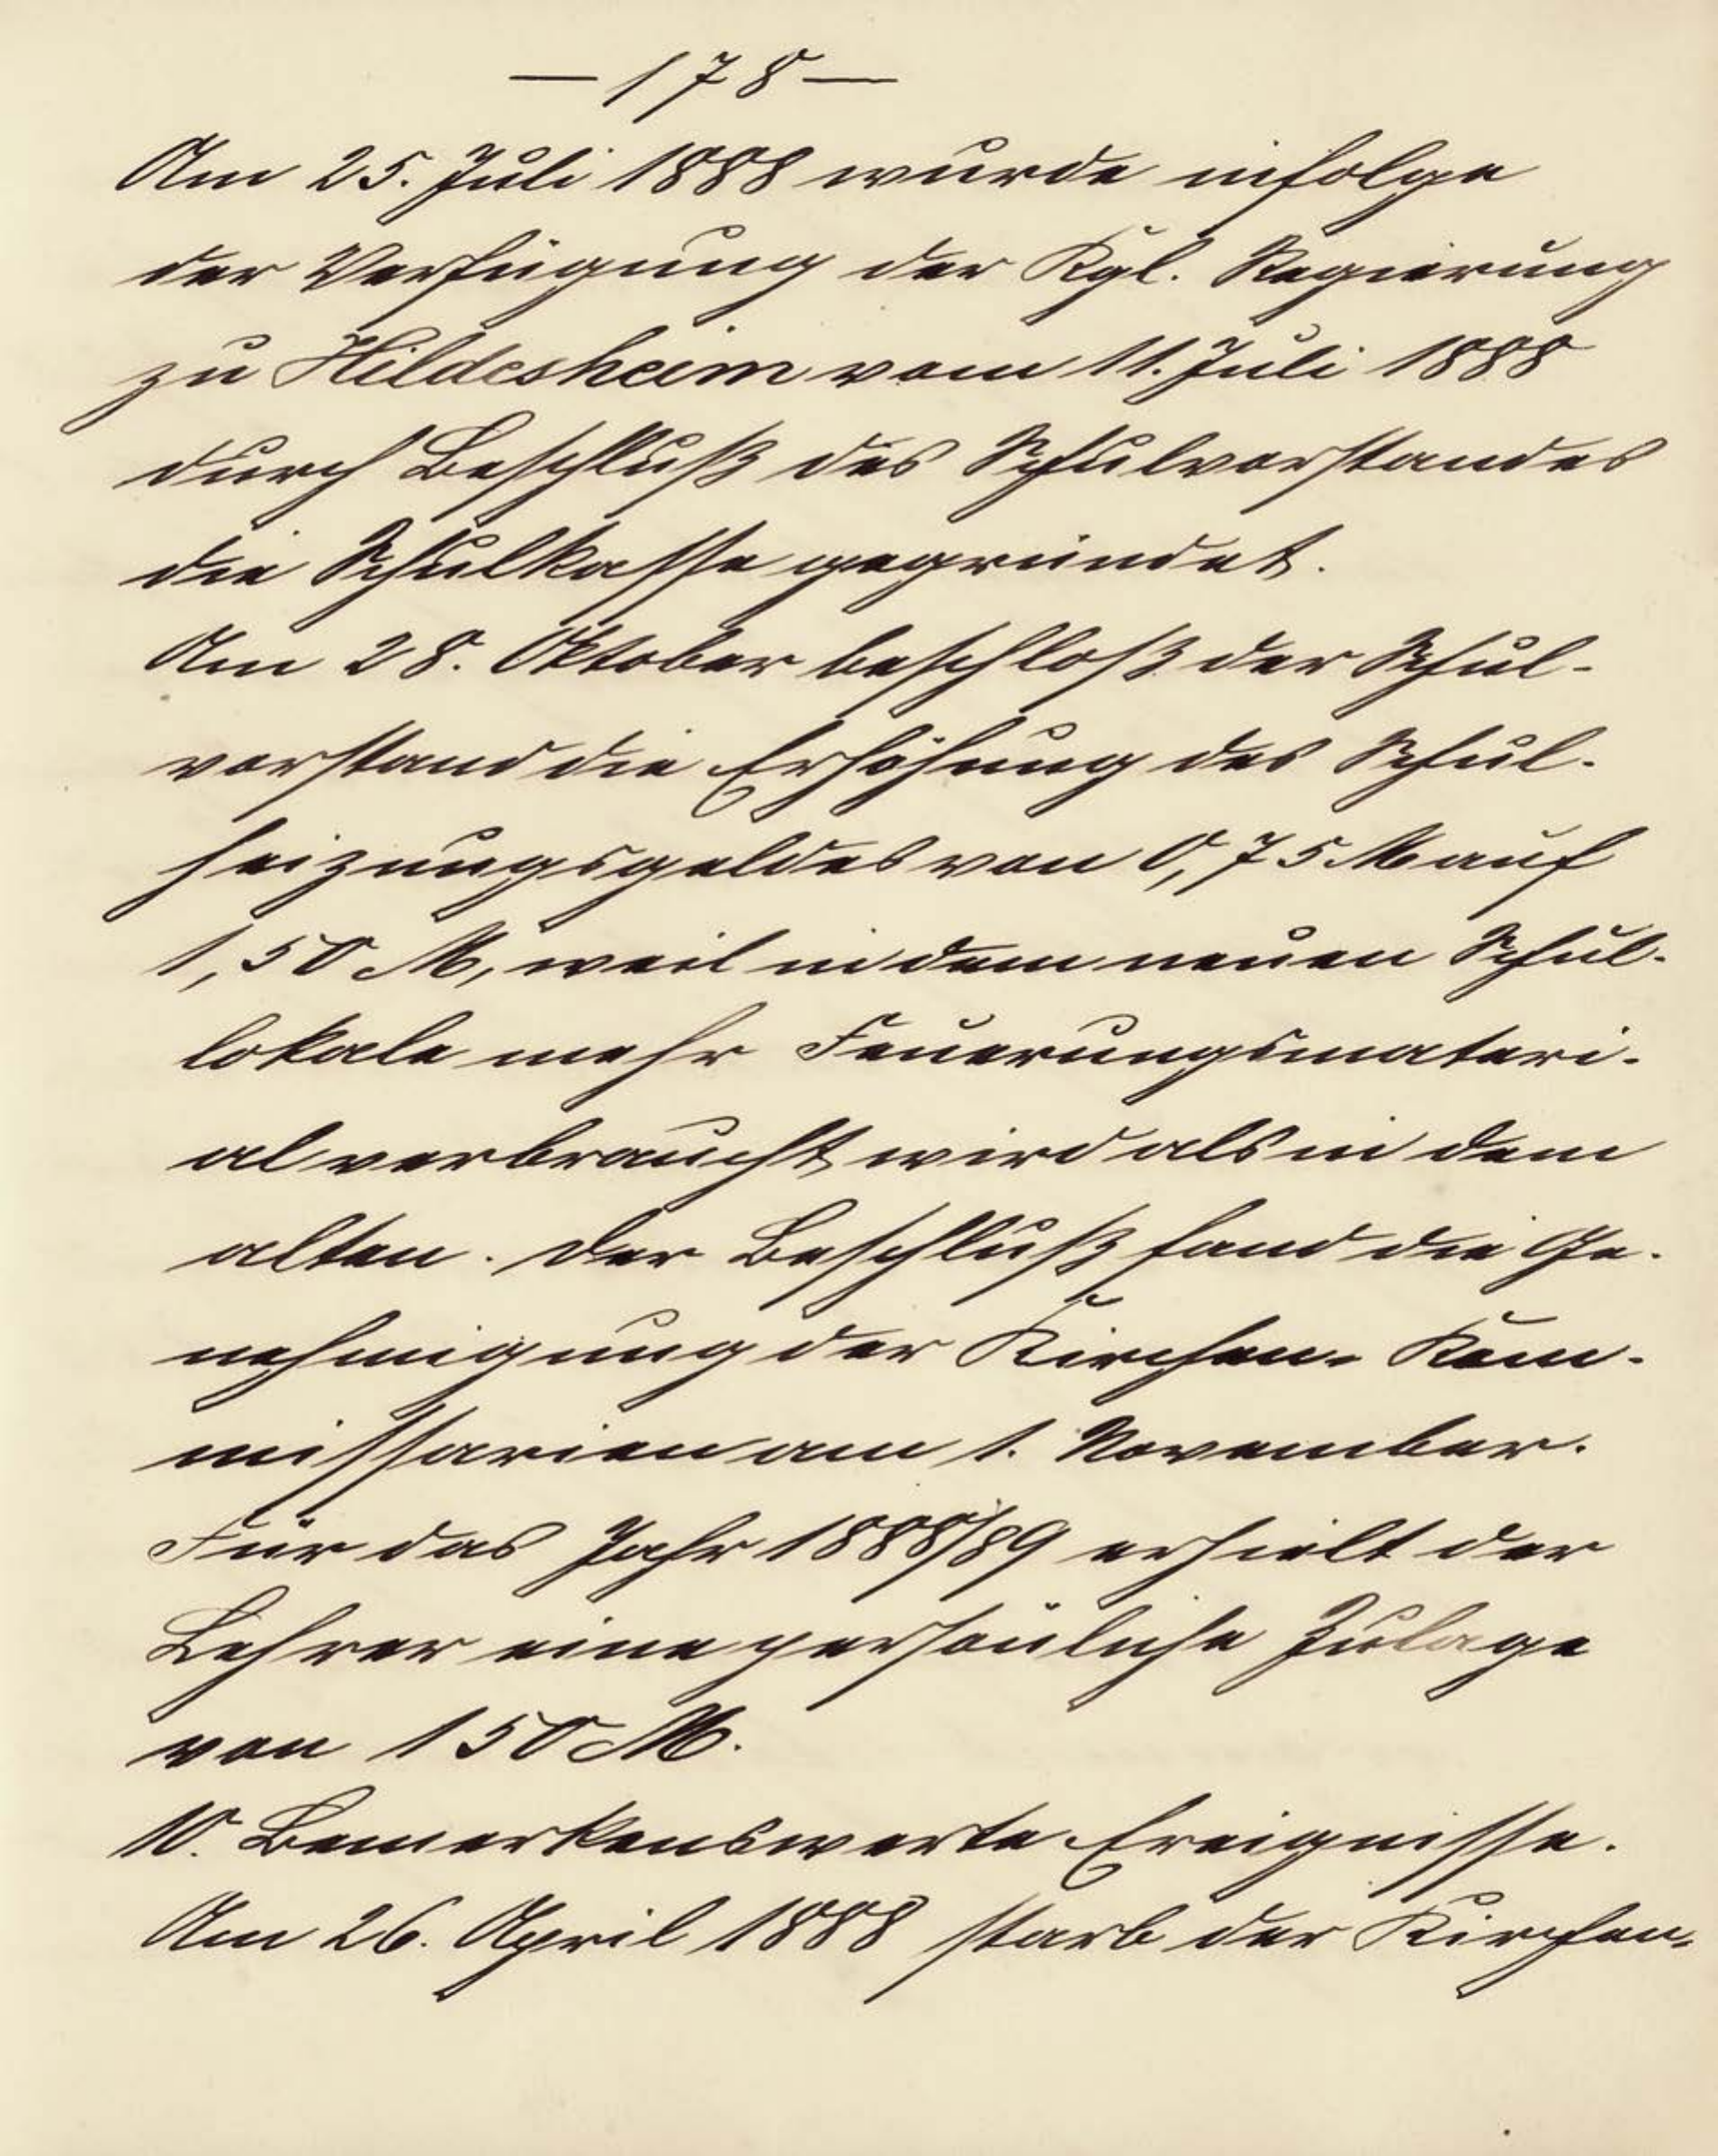 — 178 —
Am 25. Juli 1888 wurde infolge
der Verfügung der Kgl. Regierung
zu Hildesheim vom 11. Juli 1888
durch Beschluß des Schulvorstandes
die Schulkasse gegründet.
Am 28. Oktober beschloß der Schul-
vorstand die Erhöhung des Schul-
heizungsgeldes von 0,75 M auf
1,50 M, weil in dem neuen Schul-
lokale mehr Feuerungsmateri-
al verbraucht wird als in dem
alten. Der Beschluß fand die Ge-
nehmigung der Kirchen-Kom-
missarien am 1. November.
Für das Jahr 1888/89 erhielt der
Lehrer eine persönliche Zulage
von 150 M.
10. Bemerkenswerte Ereignisse.
Am 26. April 1888 starb der Kirchen-